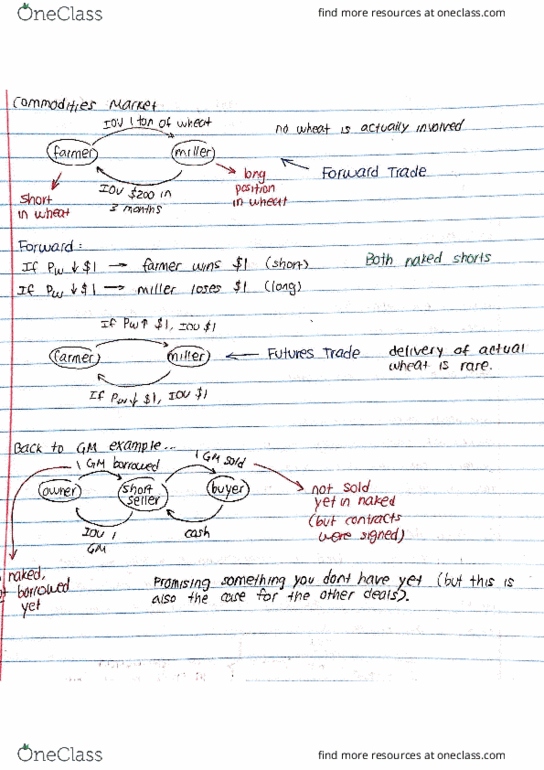 OneClass
find more resources at oneclass.com
Commodities Market
IOU 1 ton of wheat
no wheat is actually involved
farmer
miller
Forward Trade
short
in wheat
IOU $200 in
3 months
long
position
in wheat
Forward:
If Pw ↓ $1 → farmer wins $1 (short)
Both naked shorts
If Pw ↓ $1 → miller loses $1 (long)
If Pw ↑ $1, IOU $1
farmer
miller
Futures Trade
delivery of actual
wheat is rare.
If Pw ↓ $1, IOU $1
Back to GM example...
1 GM borrowed
1 GM sold
owner
short
seller
buyer
not sold
yet in naked
(but contracts
were signed)
IOU 1
GM
cash
naked,
borrowed
yet
Promising something you dont have yet (but this is
also the case for the other deals).
OneClass
find more resources at oneclass.com